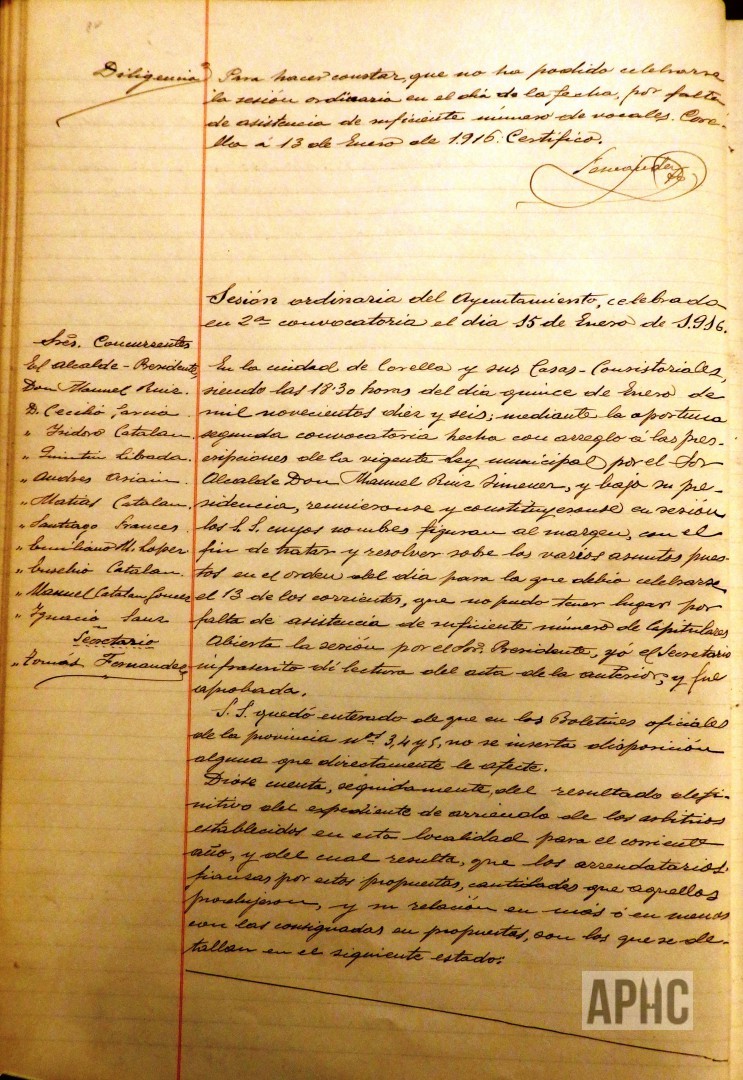 Diligencia
Para hacer constar, que no ha podido celebrarse
la sesión ordinaria en el dia de la fecha, por falta
de asistencia de suficiente número de vocales. Core-
lla á 13 de Enero de 1916. Certifico.
Fernandez
Sesión ordinaria del Ayuntamiento, celebrada
en 2ª convocatoria el dia 15 de Enero de 1.916.
Sres. Concurrentes
El Alcalde-Presidente,
Don Manuel Ruiz.
D. Cecilio Garcia
" Isidoro Catalan.
" Quintin Librada.
" Andres Ariain
" Matias Catalan.
" Santiago Frances
" Emiliano M. Lopez
" Eusebio Catalan.
" Manuel Catalan Gomez
" Ignacio Sanz
Secretario
" Tomás Fernandez
En la ciudad de Corella y sus Casas-Consistoriales,
siendo las 18'30 horas del dia quince de Enero de
mil novecientos diez y seis; mediante la oportuna
segunda convocatoria hecha con arreglo á las pres-
cripciones de la vigente Ley municipal por el Sor
Alcalde Don Manuel Ruiz Jimenez, y bajo su pre-
sidencia, reunieronse y constituyeronse en sesión
los S.S. cuyos nombres figuran al margen, con el
fin de tratar y resolver sobe los varios asuntos pues-
tos en el orden del dia para la que debió celebrarse
el 13 de los corrientes, que no pudo tener lugar por
falta de asistencia de suficiente número de Capitulares
Abierta la sesión por el Sor. Presidente, yó el Secretario
infrascrito dí lectura del acta de la anterior, y fué
aprobada.
S.S. quedó enterado de que en los Boletines oficiales
de la provincia nos 3, 4 y 5, no se inserta disposición
alguna que directamente le afecte.
Dióse cuenta, seguidamente, del resultado defi-
nitivo del expediente de arriendo de los arbitrios
establecidos en esta localidad para el corriente
año, y del cual resulta, que los arrendatarios,
fianzas por estos propuestas, cantidades que aquellos
produjeron, y su relación en más ó en menos
con las consignadas en propuestas, son los que se de-
tallan en el siguiente estado:
APHC